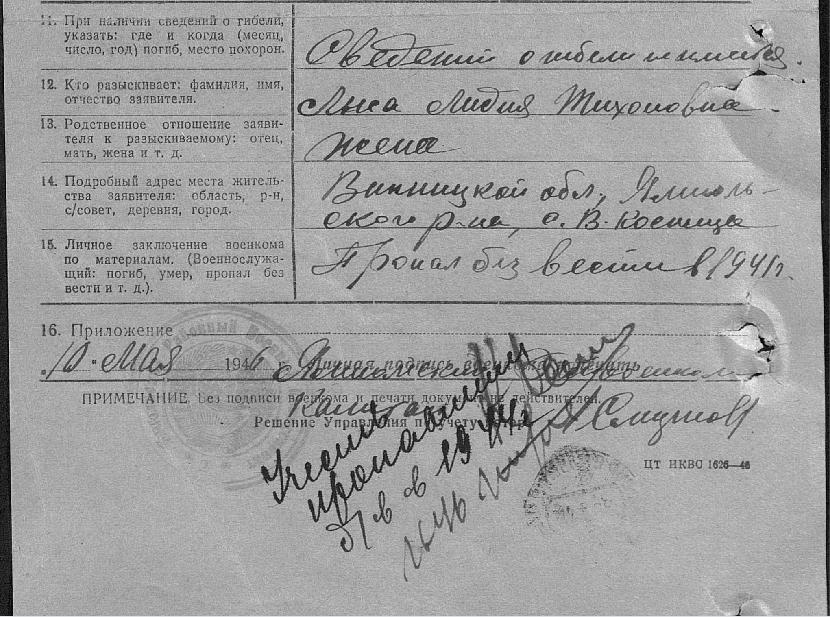 11. При наличии сведений о гибели,
указать: где и когда (месяц,
число, год) погиб, место похорон.
Сведений о гибели не имеется.
12. Кто разыскивает: фамилия, имя,
отчество заявителя.
Лидия Тихоновна
13. Родственное отношение заяви-
теля к разыскиваемому: отец,
мать, жена и т. д.
жена
14. Подробный адрес места житель-
ства заявителя: область, р-н,
с/совет, деревня, город.
Винницкой обл., Ямполь-
ского р-на, с. В-Косница
15. Личное заключение военкома
по материалам. (Военнослужа-
щий: погиб, умер, пропал без
вести и т. д.).
Пропал без вести в 1941г.
16. Приложение
"10" мая 1946 г. Личная подпись военкома и печать
ПРИМЕЧАНИЕ. Без подписи военкома и печати документ не действителен.
Капитан
Решение Управления по учету
ЦТ НКВС 1626—46
пропавшим
б/в в 1944г